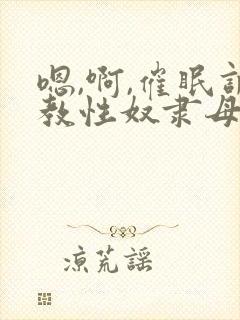 嗯,啊,催眠
教性奴隶母
凉荒謠